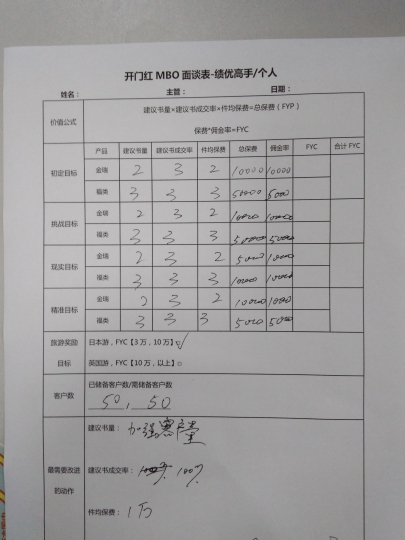 开门红 MBO 面谈表-绩优高手/个人
姓名： 主管： 日期：
价值公式 建议书量×建议书成交率×件均保费=总保费（FYP）
保费*佣金率=FYC
产品 建议书量 建议书成交率 件均保费 总保费 佣金率 FYC 合计 FYC
初定目标 金瑞 2 3 2 10000 10000
福类 3 3 3 50000 5000
挑战目标 金瑞 2 3 2 10000 10000
福类 3 3 3 50000 5000
现实目标 金瑞 2 3 2 5000 1000
福类 3 3 3 10000 10000
精准目标 金瑞 2 3 2 10000 1000
福类 3 3 3 5000 5000
旅游奖励 日本游，FYC【3 万，10 万】√
目标 英国游，FYC【10 万，以上】□
客户数 已储备客户数/需储备客户数
50，50
最需要改进的动作 建议书量：加强客户量
建议书成交率：100%
件均保费：1万